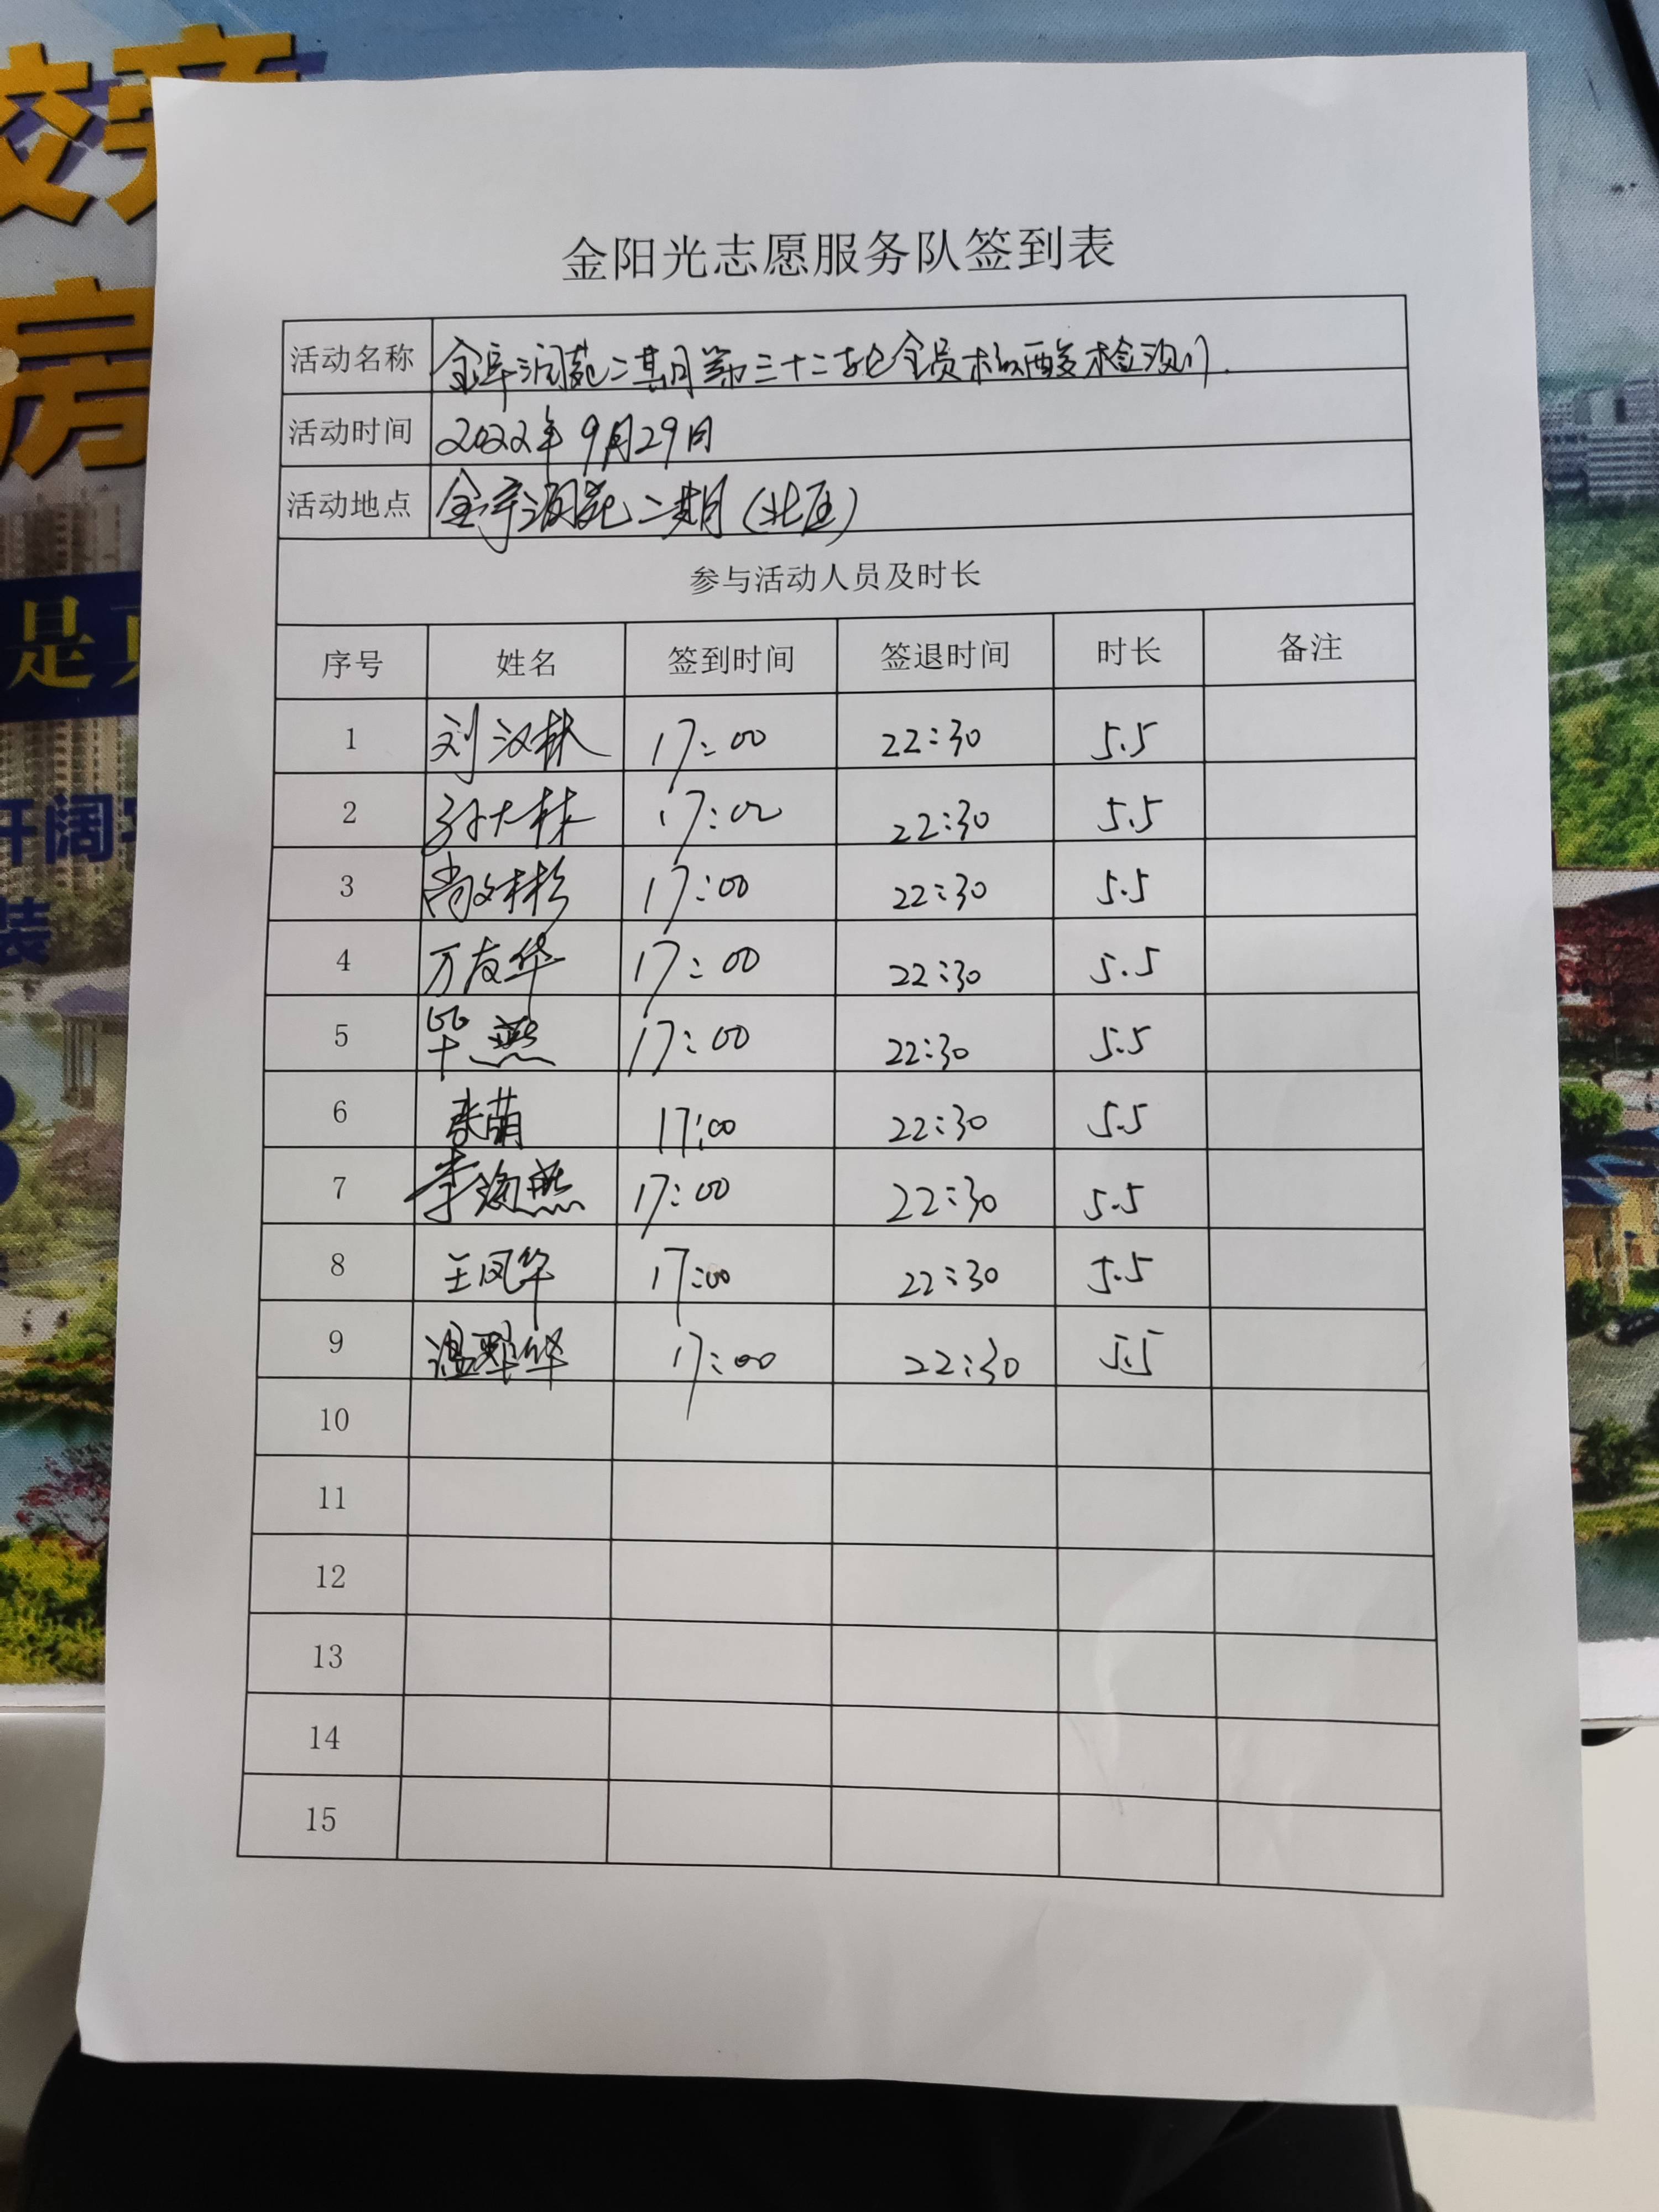 金阳光志愿服务队签到表
活动名称 金阜润苑二期第三十二轮全员核酸检测.
活动时间 2022年9月29日
活动地点 金阜润苑二期(北区)
参与活动人员及时长
序号 姓名 签到时间 签退时间 时长 备注
1 刘汉林 17:00 22:30 5.5
2 孙大林 17:00 22:30 5.5
3 尚文彬 17:00 22:30 5.5
4 万友华 17:00 22:30 5.5
5 毕燕 17:00 22:30 5.5
6 张萌 17:00 22:30 5.5
7 李海燕 17:00 22:30 5.5
8 王凤华 17:00 22:30 5.5
9 温翠华 17:00 22:30 5.5
10
11
12
13
14
15
房
是
开阔
装